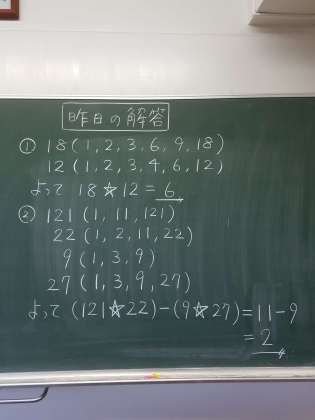 昨日の解答
① 18(1,2,3,6,9,18)
12(1,2,3,4,6,12)
よって 18☆12=6
② 121(1,11,121)
22(1,2,11,22)
9(1,3,9)
27(1,3,9,27)
よって(121☆22)-(9☆27)=11-9
=2